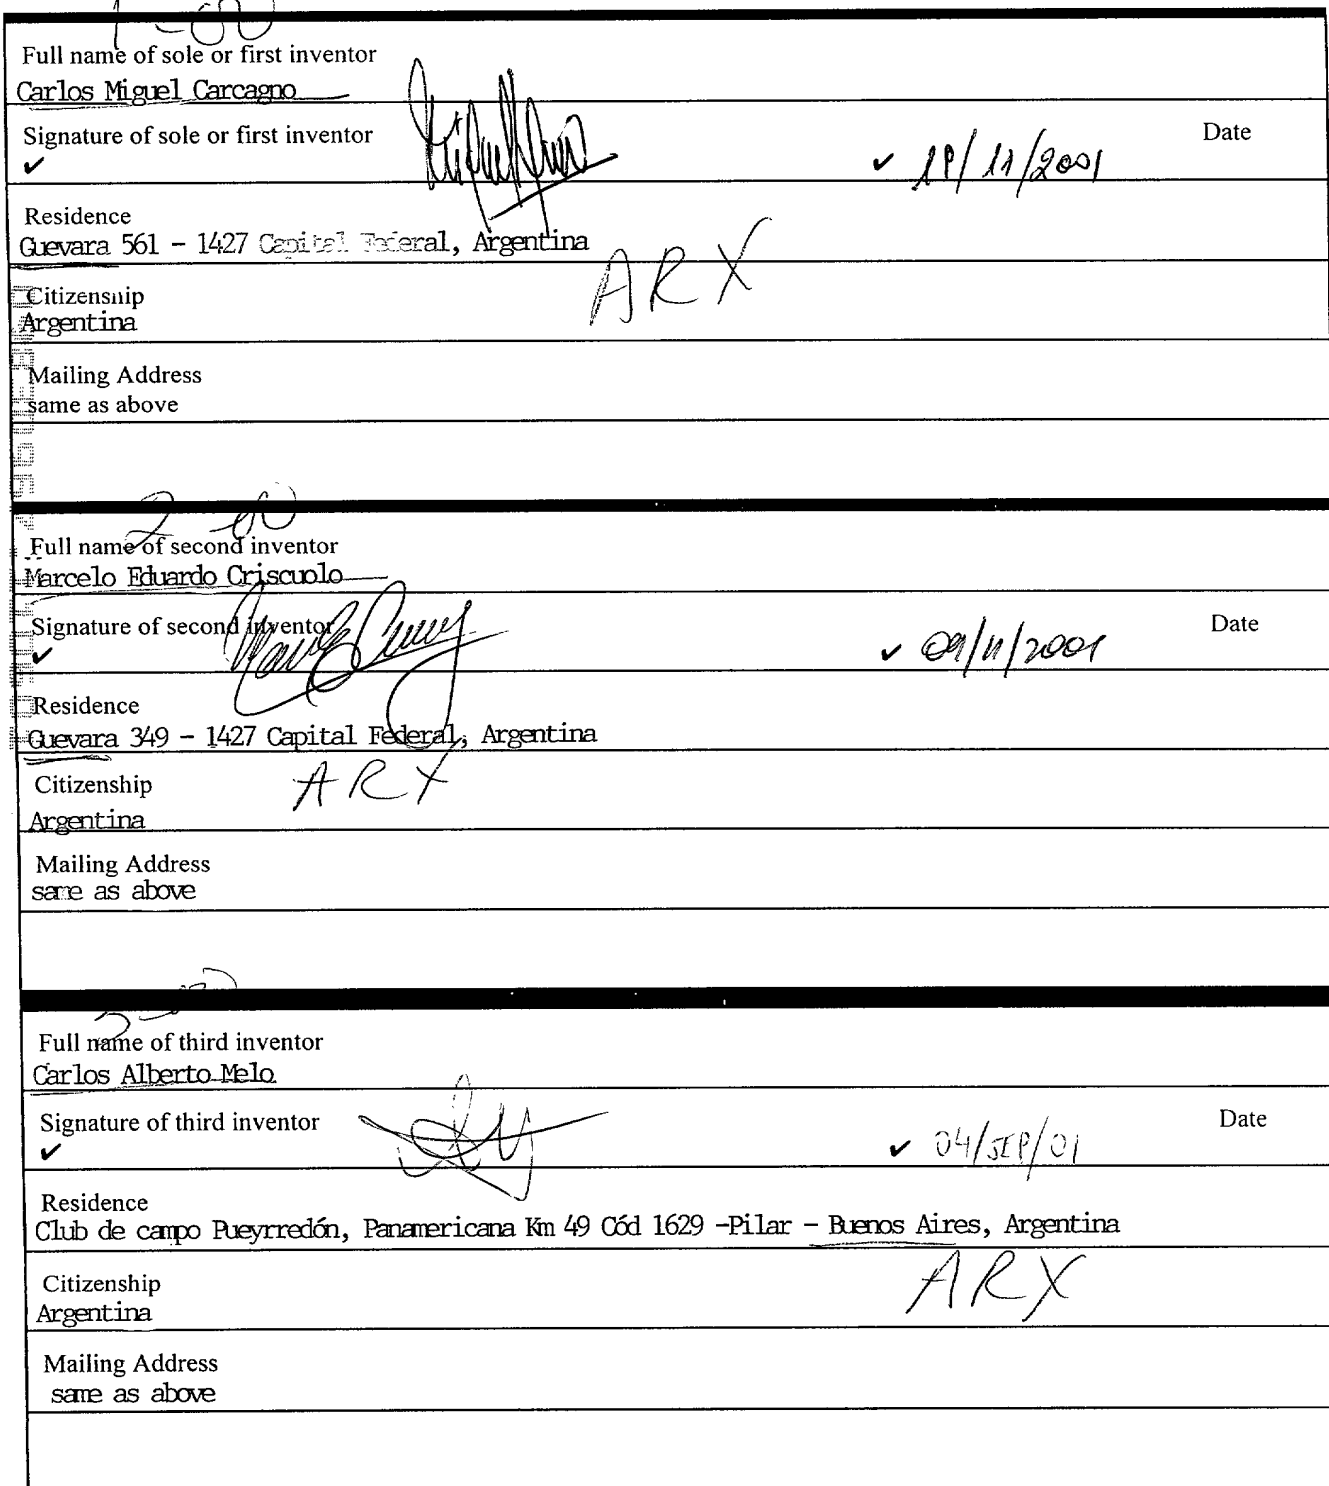 Full name of sole or first inventor
Carlos Miguel Carcagno
Signature of sole or first inventor
Date
✓ ✓ /11/2001
Residence
Guevara 561 - 1427 Capital Federal, Argentina
ARX
Citizenship
Argentina
Mailing Address
same as above
2
Full name of second inventor
Marcelo Eduardo Criscuolo
Signature of second inventor
Date
✓ ✓ 09/11/2001
Residence
Guevara 349 - 1427 Capital Federal, Argentina
ARX
Citizenship
Argentina
Mailing Address
same as above
Full name of third inventor
Carlos Alberto Melo
Signature of third inventor
Date
✓ ✓ 04/SEP/01
Residence
Club de campo Pueyrredón, Panamericana Km 49 Cód 1629 -Pilar - Buenos Aires, Argentina
ARX
Citizenship
Argentina
Mailing Address
same as above